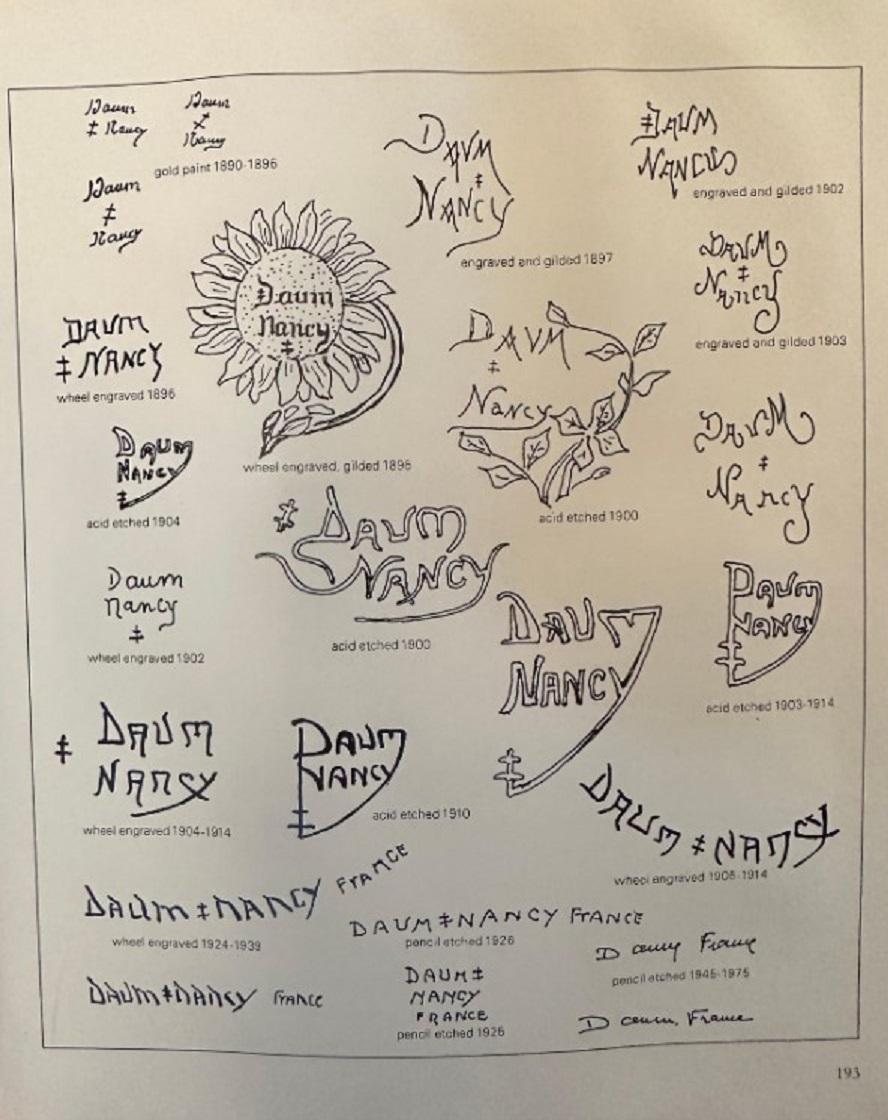 Daum
‡ Nancy
Daum
‡
Nancy
gold paint 1890-1896
Daum
‡
Nancy
DAUM
‡
NANCY
engraved and gilded 1897
‡DAUM
NANCY
engraved and gilded 1902
Daum
Nancy
‡
wheel engraved, gilded 1896
DAUM
‡
Nancy
engraved and gilded 1903
DAUM
‡ NANCY
wheel engraved 1896
DAUM
‡
Nancy
acid etched 1900
DAUM
‡
Nancy
DAUM
NANCY
‡
acid etched 1904
‡ DAUM
NANCY
acid etched 1900
Daum
nancy
‡
wheel engraved 1902
DAUM
NANCY
‡
DAUM
NANCY
‡
acid etched 1903-1914
‡ DAUM
NANCY
wheel engraved 1904-1914
DAUM
NANCY
‡
acid etched 1910
DAUM ‡ NANCY
wheel engraved 1905-1914
DAUM ‡ NANCY FRANCE
wheel engraved 1924-1939
DAUM ‡ NANCY FRANCE
pencil etched 1926
Daum France
pencil etched 1945-1975
DAUM ‡ NANCY FRANCE
DAUM ‡
NANCY
FRANCE
pencil etched 1926
Daum, France
193